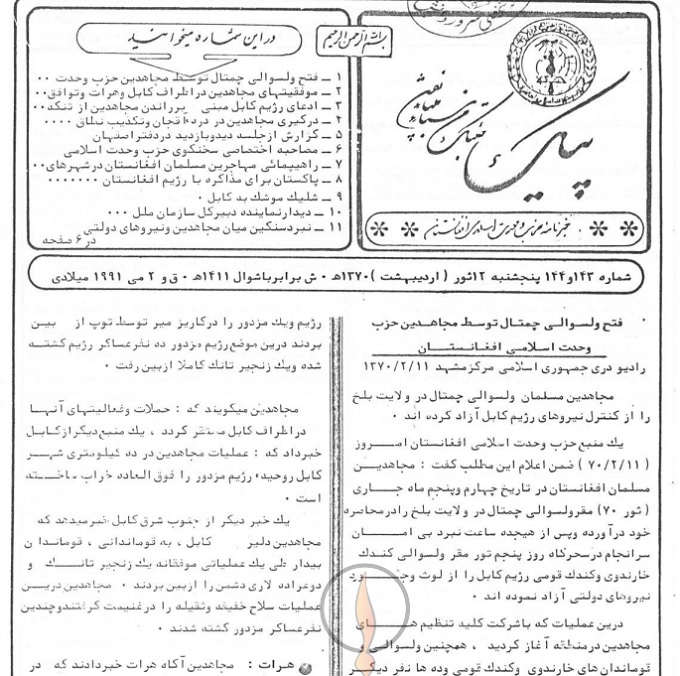 در این شماره میخوانید
بسم الله الرحمن الرحیم
۱ ــ فتح ولسوالی چمتال توسط مجاهدین حزب وحدت ۰۰
۲ ــ موفقیتهای مجاهدین در اطراف کابل وهرات وتوافق۰۰
۳ ــ ادعای رژیم کابل مبنی برراندن مجاهدین از تنگه ۰۰
۴ ــ درگیری مجاهدین در دره وتکذیب نطاق ۰۰۰۰
۵ ــ گزارش ازجلسه دیدوبازدید دردفتر اصفهان
۶ ــ مصاحبه اختصاصی سخنگوی حزب وحدت اسلامی
۷ ــ راهپیمائی مهاجرین مسلمان افغانستان در شهرهای۰۰
۸ ــ پاکستان برای مذاکره با رژیم افغانستان ۰۰۰۰۰۰۰
۹ ــ شلیک موشک به کابل ۰
۱۰ ــ دیدارنماینده دبیرکل سازمان ملل ۰۰۰
۱۱ ــ نبردسنگین میان مجاهدین ونیروهای دولتی
در ۶ صفحه
پیک
خبرنامه حزب وحدت اسلامی افغانستان
شماره ۱۴۳و۱۴۴ پنجشنبه ۱۲ ثور ( اردیبهشت ) ۱۳۷۰ه ۰ ش برابر باشوال ۱۴۱۱ه ۰ ق و ۲ می ۱۹۹۱ میلادی
فتح ولسوالی چمتال توسط مجاهدین حزب
وحدت اسلامی افغانستان
رادیو دری جمهوری اسلامی مرکز مشهد ۱۳۷۰/۲/۱۱
مجاهدین مسلمان ولسوالی چمتال در ولایت بلخ
را از کنترل نیروهای رژیم کابل آزاد کرده اند ۰
یک منبع حزب وحدت اسلامی افغانستان امـــروز
( ۷۰/۲/۱۱ ) ضمن اعلام این مطلب گفت : مجاهدیــن
مسلمان افغانستان در تاریخ چهارم وپنجم ماه جـــاری
( ثور ۷۰) مقرولسوالی چمتال در ولایت بلخ رادرمحاصره
خود درآورده وپس از هیجده ساعت نبرد بی امـــان
سرانجام درسحرگاه روز پنجم ثور مقر ولسوالی کندک
خارندوی وکندک قومی رژیم کابل را از لوث وجـــود
نیروهای دولتی آزاد نموده اند ۰
درین عملیات که باشرکت کلیه تنظیم هــــای
مجاهدین درمنطقه آغاز گردید ، همچنین ولسوالـی و
قوماندان های خارندوی وکندک قومی وده ها نفر دیگـر
رژیم ویک مزدور را درکاریز میر توسط توپ از بین
بردند درین موضع رژیم مزدور ده نفرعساکر رژیم کشتـه
شده ویک زنجیر تانک کاملا ازبین رفت ۰
مجاهدین میگویند که : حملات وفعالیتهای آنهـا
دراطراف کابل مستقر گردد ، یک منبع دیگرازکابـل
خبرداد که : عملیات مجاهدین در ده کیلومتری شهــر
کابل روحیه رژیم مزدور را فوق العاده خراب ساخـتـه
است ۰
یک خبر دیگر از جنوب شرق کابل خبر میدهد که
مجاهدین دلیر کابل ، به قوماندانی ، قوماندان
بیدار طی یک عملیاتی موفقانه یک زنجیر تانــک و
دوعراده لاری دشمن را ازبین بردند ۰ مجاهدین دریــن
عملیات سلاح خفیفه وثقیله را درغنیمت گرفتندوچندین
نفرعساکر مزدور گشته شدند ۰
هــرات : مجاهدین آگاه هرات خبردادند که در